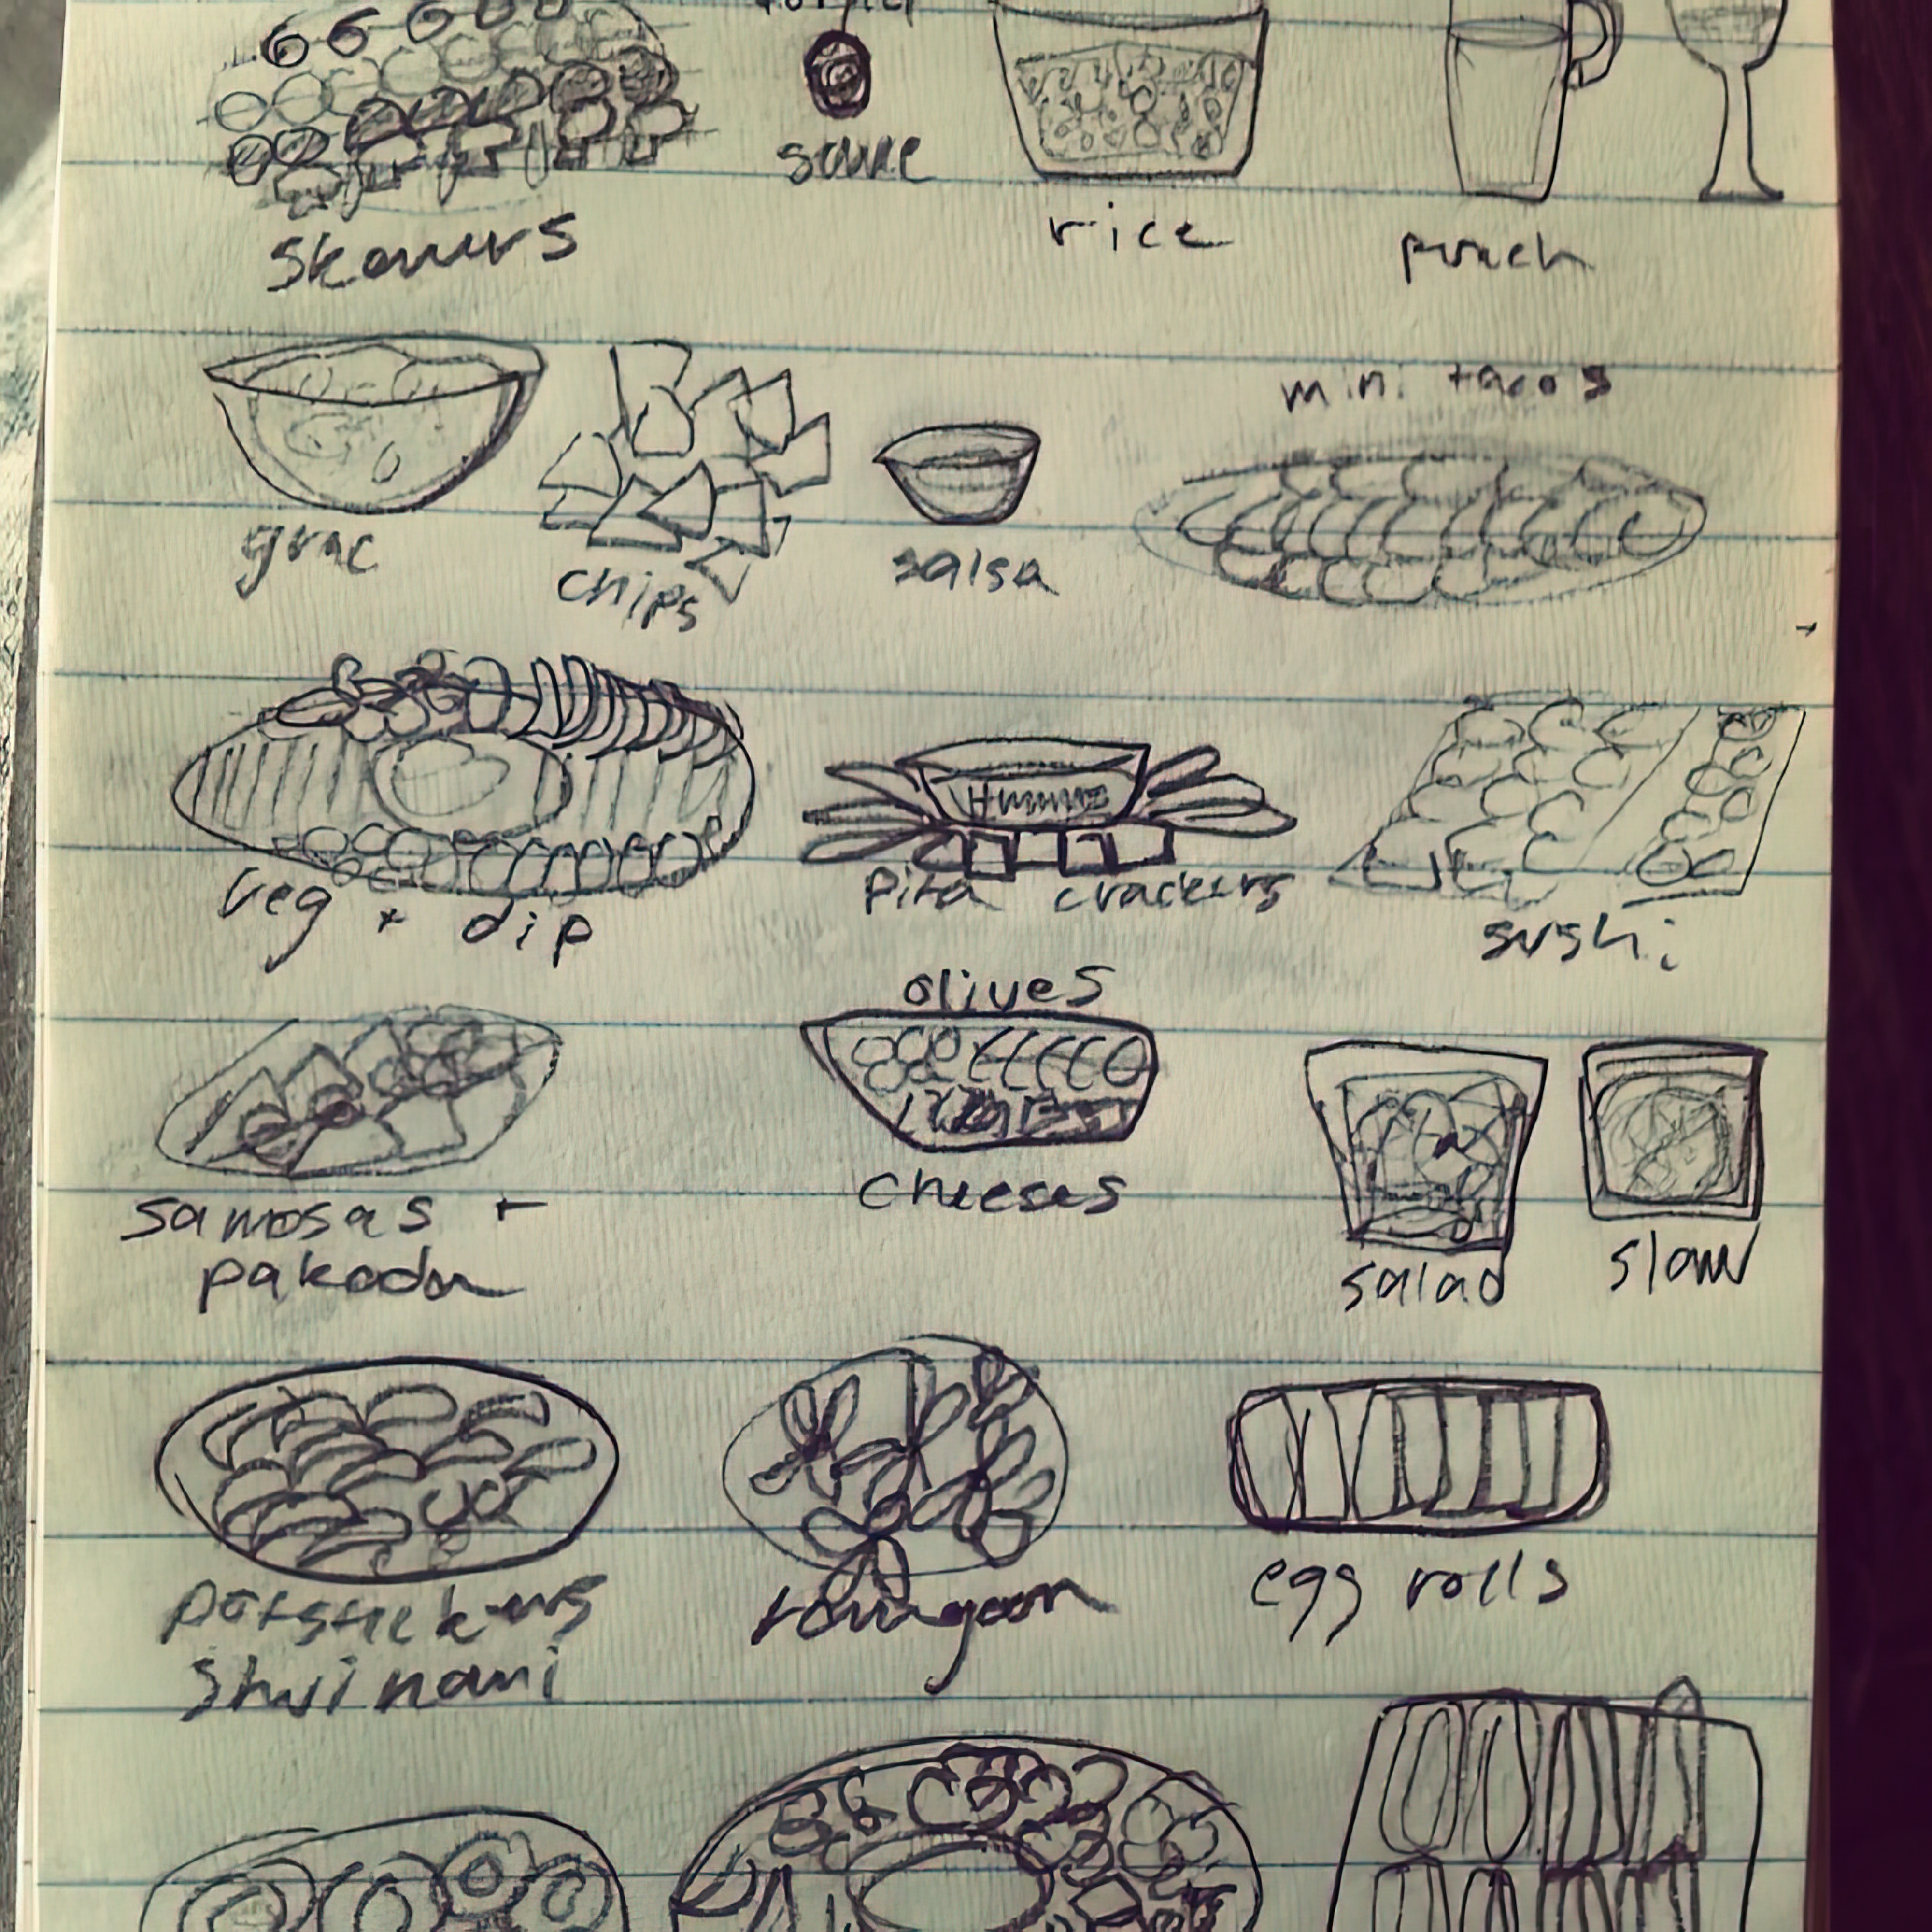 sauce
skewers
rice
punch
mini tacos
guac
chips
salsa
Hummz
veg + dip
pita crackers
sushi
olives
samosas +
pakoda
cheeses
salad
slaw
potstickers
rangoon
egg rolls